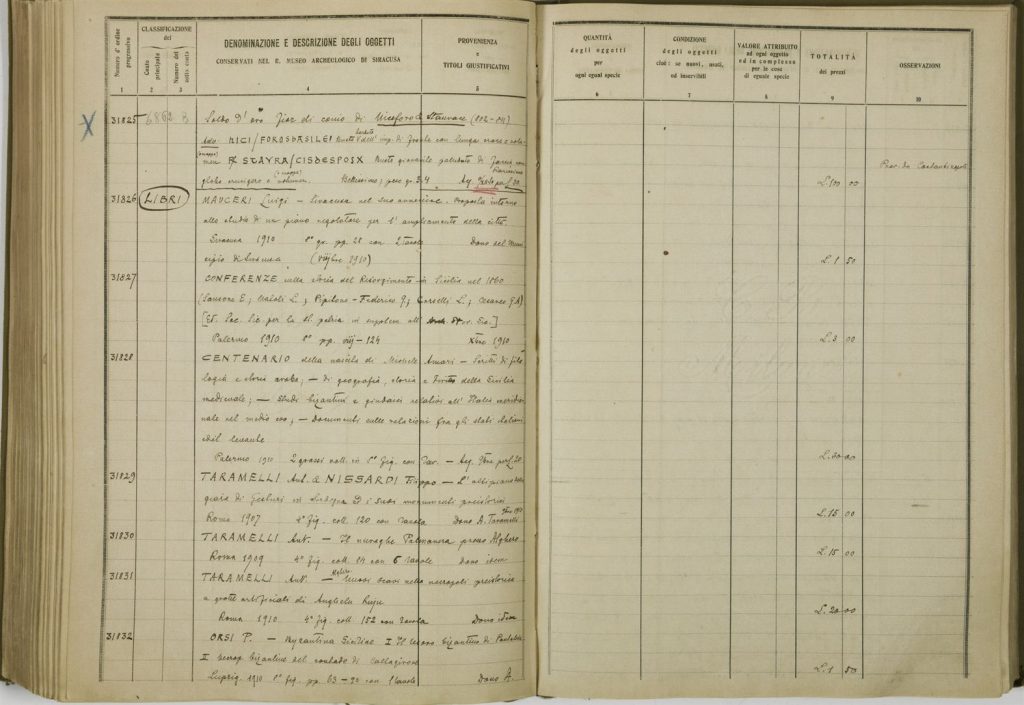 Numero d'ordine progressivo
CLASSIFICAZIONE
del
Conto principale
Numero del sotto conto
DENOMINAZIONE E DESCRIZIONE DEGLI OGGETTI
CONSERVATI NEL R. MUSEO ARCHEOLOGICO DI SIRACUSA
PROVENIENZA
e
TITOLI GIUSTIFICATIVI
1 2 3 4 5
31825 6862 B Soldo d'oro di conio di Niceforo e Staurace
NICI/FOROSBASILE
STAVRA/CISDESPOSX
globo crucigero e Bellissimo; peso gr.
31826 LIBRI MAUCERI Luigi – Siracusa nel suo avvenire. Proposta intorno
allo studio di un piano regolatore per l'ampliamento della città.
Siracusa 1910 8° gr. pp. 28 con 2 tavole Dono del Muni
cipio di Siracusa
31827 CONFERENZE sulla storia del Risorgimento in Sicilia nel 1860
(Sansone E; Natoli L.; Pipitone-Federico G;
Palermo 1910 8° pp. viij – 124 Xbre 1910
31828 CENTENARIO della nascita di Michele Amari – Scritti di filo
logia e storia araba; – di geografia, storia e diritto della Sicilia
medievale; – Studi bizantini e giudaici relativi all'Italia meridio
nale nel medio evo; – Documenti sulle relazioni fra gli stati italiani
ed il levante
Palermo 1910 2 grossi voll. in 8° fig. con tav. –
31829 TARAMELLI Ant. & NISSARDI Filippo – L'altipiano della
giara di Gesturi in Sardegna ed i suoi monumenti preistorici
Roma 1907 4° fig. coll. 120 con tavola Dono A. Taramelli
31830 TARAMELLI Ant. – Il nuraghe Palmavera presso Alghero
Roma 1909 4° fig. coll. 14 con 6 tavole Dono idem
31831 TARAMELLI Ant. – Nuovi scavi nella necropoli preistorica
a grotte artificiali di Anghelu Ruju
Roma 1910 4° fig. coll. 152 con tavola Dono idem
31832 ORSI P. – Byzantina Siciliae I Il tesoro bizantino di Pantalica
Caltagirone
Leipzig 1910 8° fig. pp. 63 – 90 con 1 tavole Dono A.
QUANTITÀ
degli oggetti
per
ogni egual specie
CONDIZIONE
degli oggetti
cioè: se nuovi, usati,
od inservibili
VALORE ATTRIBUITO
ad ogni oggetto
od in complesso
per le cose
di eguale specie
TOTALITÀ
dei prezzi
OSSERVAZIONI
6 7 8 9 10
Prov. da Costantinopoli
L. 100 00
L. 1 50
L. 3 00
L. 30 00
L. 15 00
L. 15 00
L. 20 00
L. 1 50